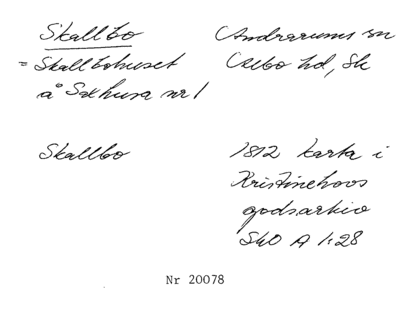 Skallbo
Andrarums sn
= Skallbohuset
Albo hd, Sk
å Sæhusa nr 1
Skallbo
1812 karta i
Kristinehovs
godsarkiv
SkO A 1:28
Nr 20078